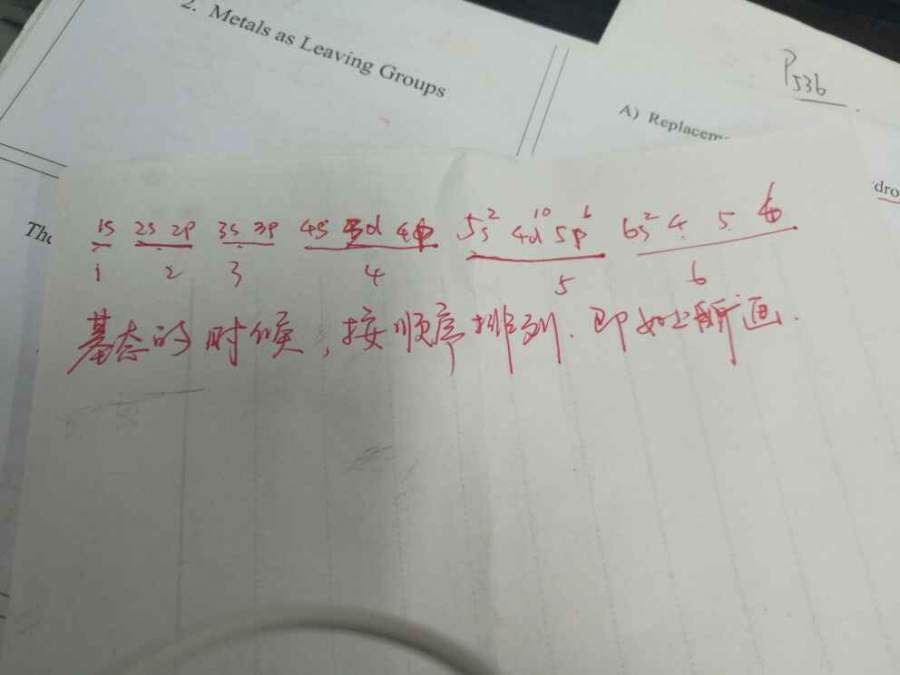 2. Metals as Leaving Groups
P536
A) Replacem
dro
The
1s 2s 2p 3s 3p 4s 3d 4p 5s² 4d¹⁰ 5p⁶ 6s² 4 5 6
1 2 3 4 5 6
基态的时候,按顺序排列.即如上所画.